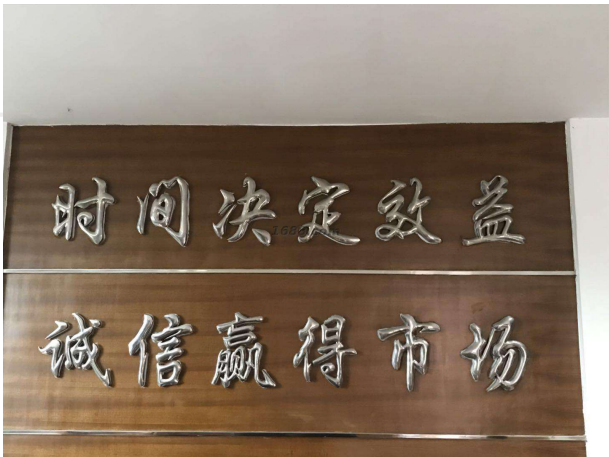 时间决定效益
诚信赢得市场